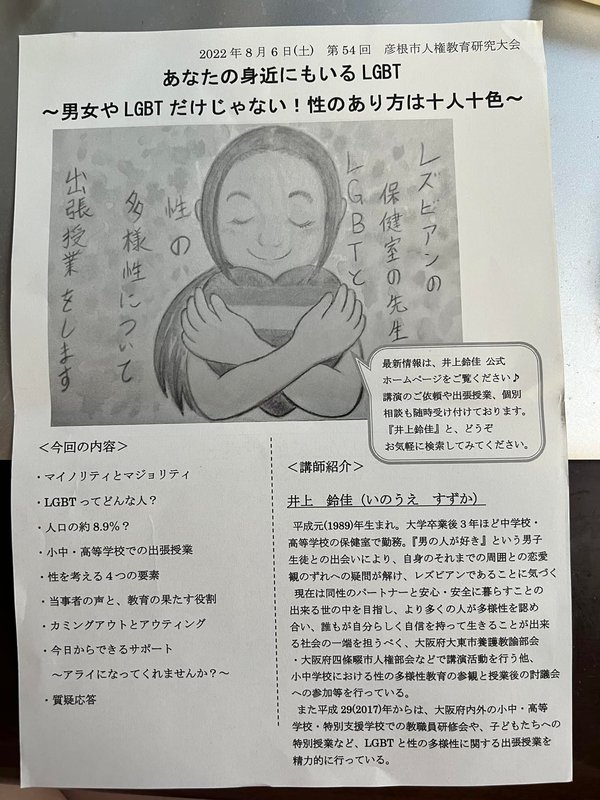 2022年8月6日(土)　第54回　彦根市人権教育研究大会
あなたの身近にもいるLGBT
～男女やLGBTだけじゃない！性のあり方は十人十色～
レズビアンの
保健室の先生
LGBTと
性の
多様性について
出張授業をします
最新情報は、井上鈴佳 公式
ホームページをご覧ください♪
講演のご依頼や出張授業、個別
相談も随時受け付けております。
『井上鈴佳』と、どうぞ
お気軽に検索してみてください。
＜今回の内容＞
・マイノリティとマジョリティ
・LGBTってどんな人？
・人口の約8.9％？
・小中・高等学校での出張授業
・性を考える４つの要素
・当事者の声と、教育の果たす役割
・カミングアウトとアウティング
・今日からできるサポート
～アライになってくれませんか？～
・質疑応答
＜講師紹介＞
井上　鈴佳（いのうえ　すずか）
平成元(1989)年生まれ。大学卒業後３年ほど中学校・
高等学校の保健室で勤務。『男の人が好き』という男子
生徒との出会いにより、自身のそれまでの周囲との恋愛
観のずれへの疑問が解け、レズビアンであることに気づく
現在は同性のパートナーと安心・安全に暮らすことの
出来る世の中を目指し、より多くの人が多様性を認め
合い、誰もが自分らしく自信を持って生きることが出来
る社会の一端を担うべく、大阪府大東市養護教諭部会
・大阪府四條畷市人権部会などで講演活動を行う他、
小中学校における性の多様性教育の参観と授業後の討議会
への参加等を行っている。
また平成29(2017)年からは、大阪府内外の小中・高等
学校・特別支援学校での教職員研修会や、子どもたちへの
特別授業など、LGBTと性の多様性に関する出張授業を
精力的に行っている。